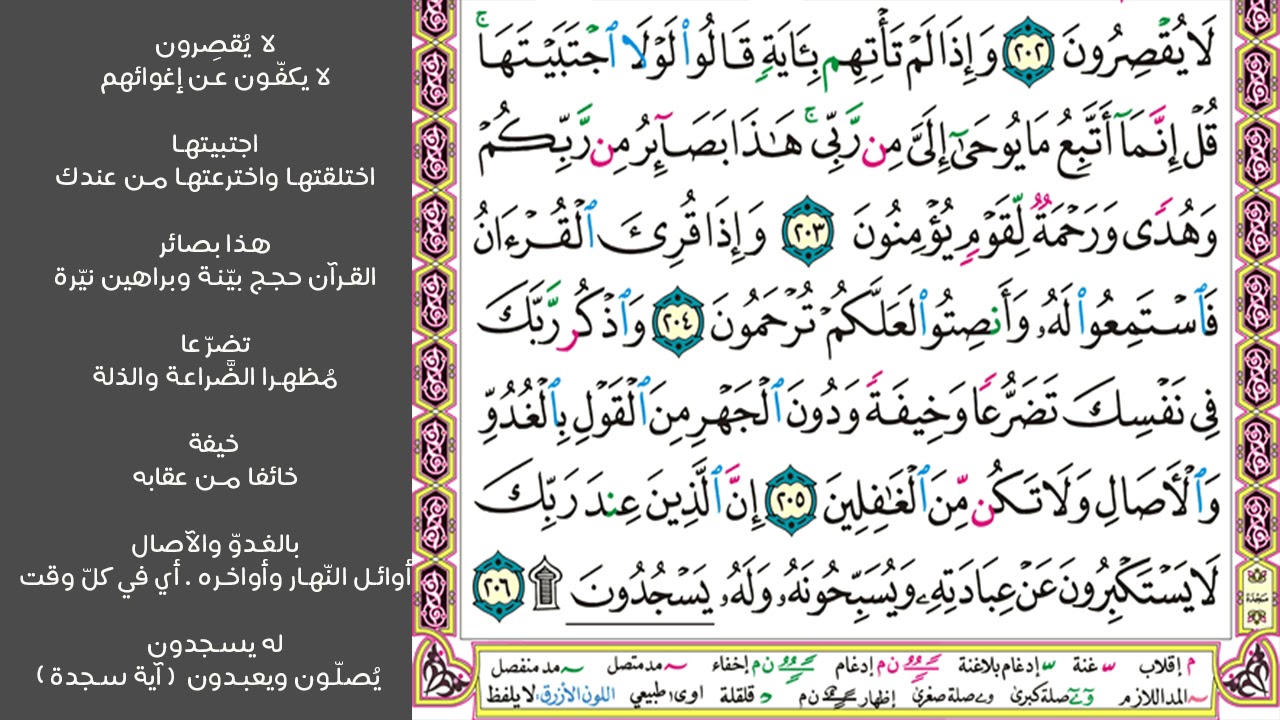 لَا يُقْصِرُونَ ٢٠٢ وَإِذَا لَمْ تَأْتِهِم بِـَٔايَةٍ قَالُوا۟ لَوْلَا ٱجْتَبَيْتَهَا ۚ
قُلْ إِنَّمَآ أَتَّبِعُ مَا يُوحَىٰٓ إِلَىَّ مِن رَّبِّى ۚ هَـٰذَا بَصَآئِرُ مِن رَّبِّكُمْ
وَهُدًى وَرَحْمَةٌ لِّقَوْمٍ يُؤْمِنُونَ ٢٠٣ وَإِذَا قُرِئَ ٱلْقُرْءَانُ
فَٱسْتَمِعُوا۟ لَهُۥ وَأَنصِتُوا۟ لَعَلَّكُمْ تُرْحَمُونَ ٢٠٤ وَٱذْكُر رَّبَّكَ
فِى نَفْسِكَ تَضَرُّعًا وَخِيفَةً وَدُونَ ٱلْجَهْرِ مِنَ ٱلْقَوْلِ بِٱلْغُدُوِّ
وَٱلْـَٔاصَالِ وَلَا تَكُن مِّنَ ٱلْغَـٰفِلِينَ ٢٠٥ إِنَّ ٱلَّذِينَ عِندَ رَبِّكَ
لَا يَسْتَكْبِرُونَ عَنْ عِبَادَتِهِۦ وَيُسَبِّحُونَهُۥ وَلَهُۥ يَسْجُدُونَ ۩ ٢٠٦
سجدة
م إقلاب ـ غنة ـ إدغام بلاغنة ن م إدغام ن م إخفاء ـ مد متصل ـ مد منفصل
ـ المد اللازم و ے صلة كبرى و ے صلة صغرى إظهار ن م د قلقلة اوى١ طبيعي اللون الأزرق: لا يلفظ
لا يُقصِرون
لا يكفّون عن إغوائهم
اجتبيتها
اختلقتها واخترعتها من عندك
هذا بصائر
القرآن حجج بيّنة وبراهين نيّرة
تضرّعا
مُظهرا الضَّراعة والذلة
خيفة
خائفا من عقابه
بالغدوّ والآصال
أوائل النّهار وأواخره . أي في كلّ وقت
له يسجدون
يُصلّون ويعبدون ( آية سجدة )